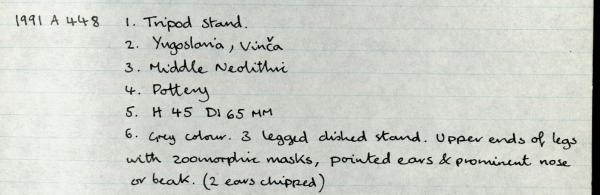 1991 A 448 1. Tripod stand.
2. Yugoslavia, Vinča
3. Middle Neolithic
4. Pottery
5. H 45 DI 65 MM
6. Grey colour. 3 legged dished stand. Upper ends of legs
with zoomorphic masks, pointed ears & prominent nose
or beak. (2 ears chipped)